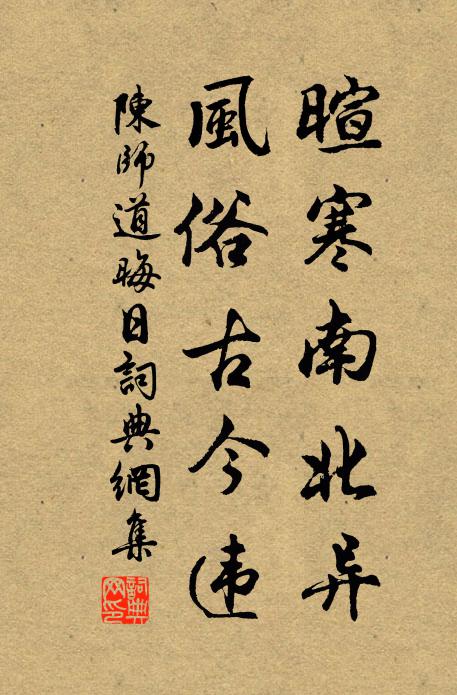 暄寒南北异
風俗古今违
陳師道晦日詞典網集
詞典网印